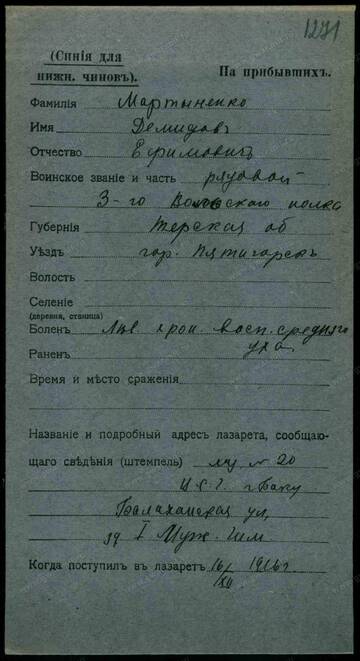 1271
(Синія для
нижн. чиновъ).
На прибывшихъ.
Фамилія Мартыненко
Имя Демидовъ
Отчество Ефимовичъ
Воинское званіе и часть рядовой
3-го полка
Губернія Терская об
Уѣздъ гор. Пятигорскъ
Волость
Селеніе
(деревня, станица)
Боленъ хрон. восп. средняго
уха
Раненъ
Время и мѣсто сраженія
Названіе и подробный адресъ лазарета, сообщаю-
щаго свѣдѣнія (штемпель) № 20
г. Баку
Балаханская ул,
I Муж. Гим.
Когда поступилъ въ лазаретъ 16/XII 1916 г.